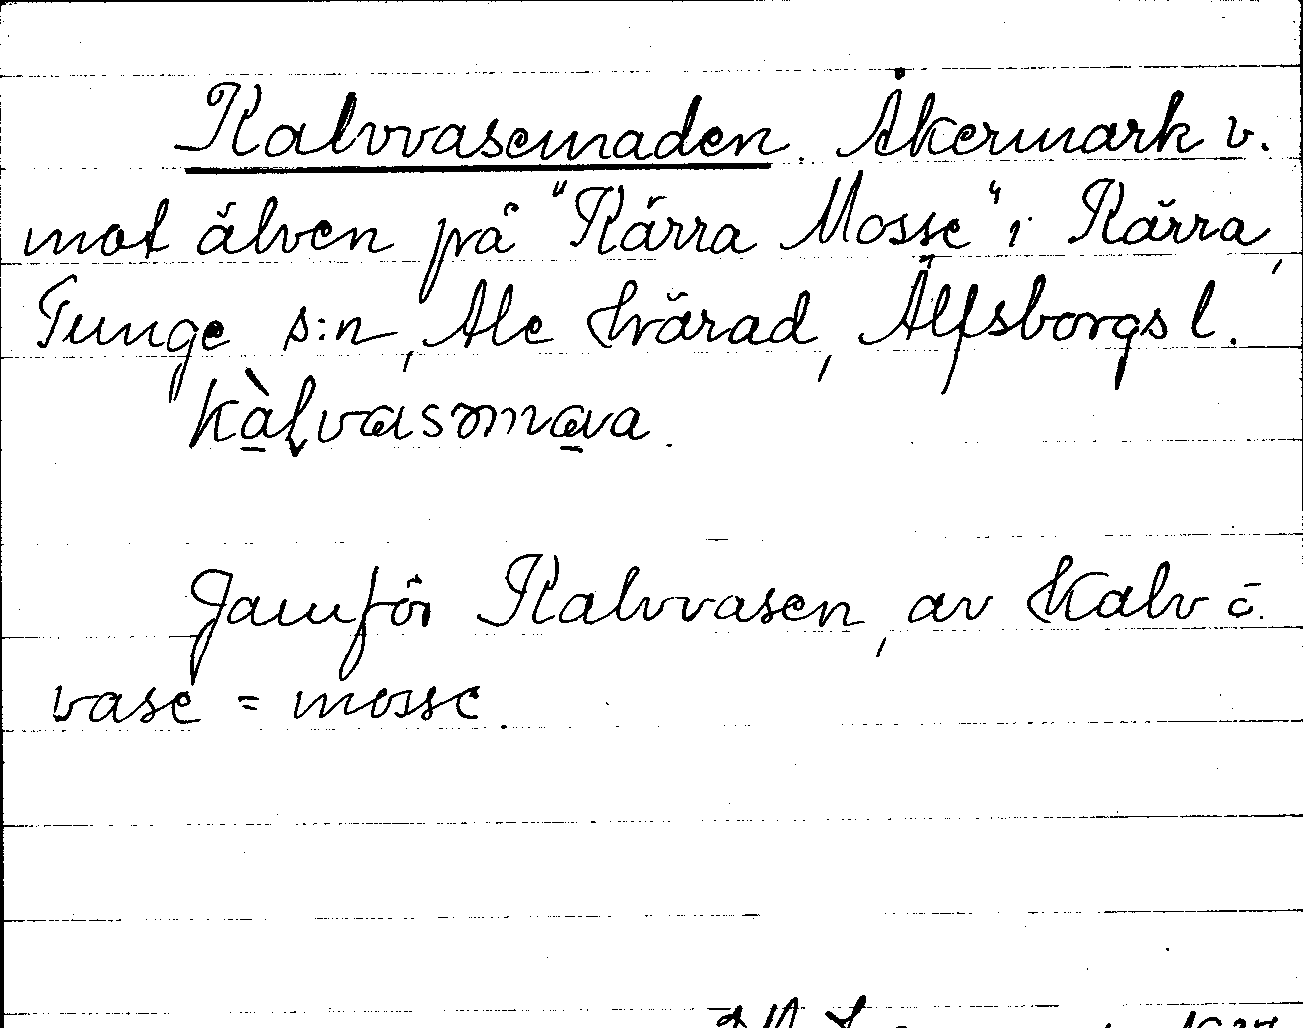 Kalvvasemaden. Åkermark v.
mot älven på "Kärra Mosse" i Kärra,
Tunge s:n, Ale härad, Älfsborgs l.
kàlvasəmava.
Jämför Kalvvasen, av kalv o.
vase = mosse.